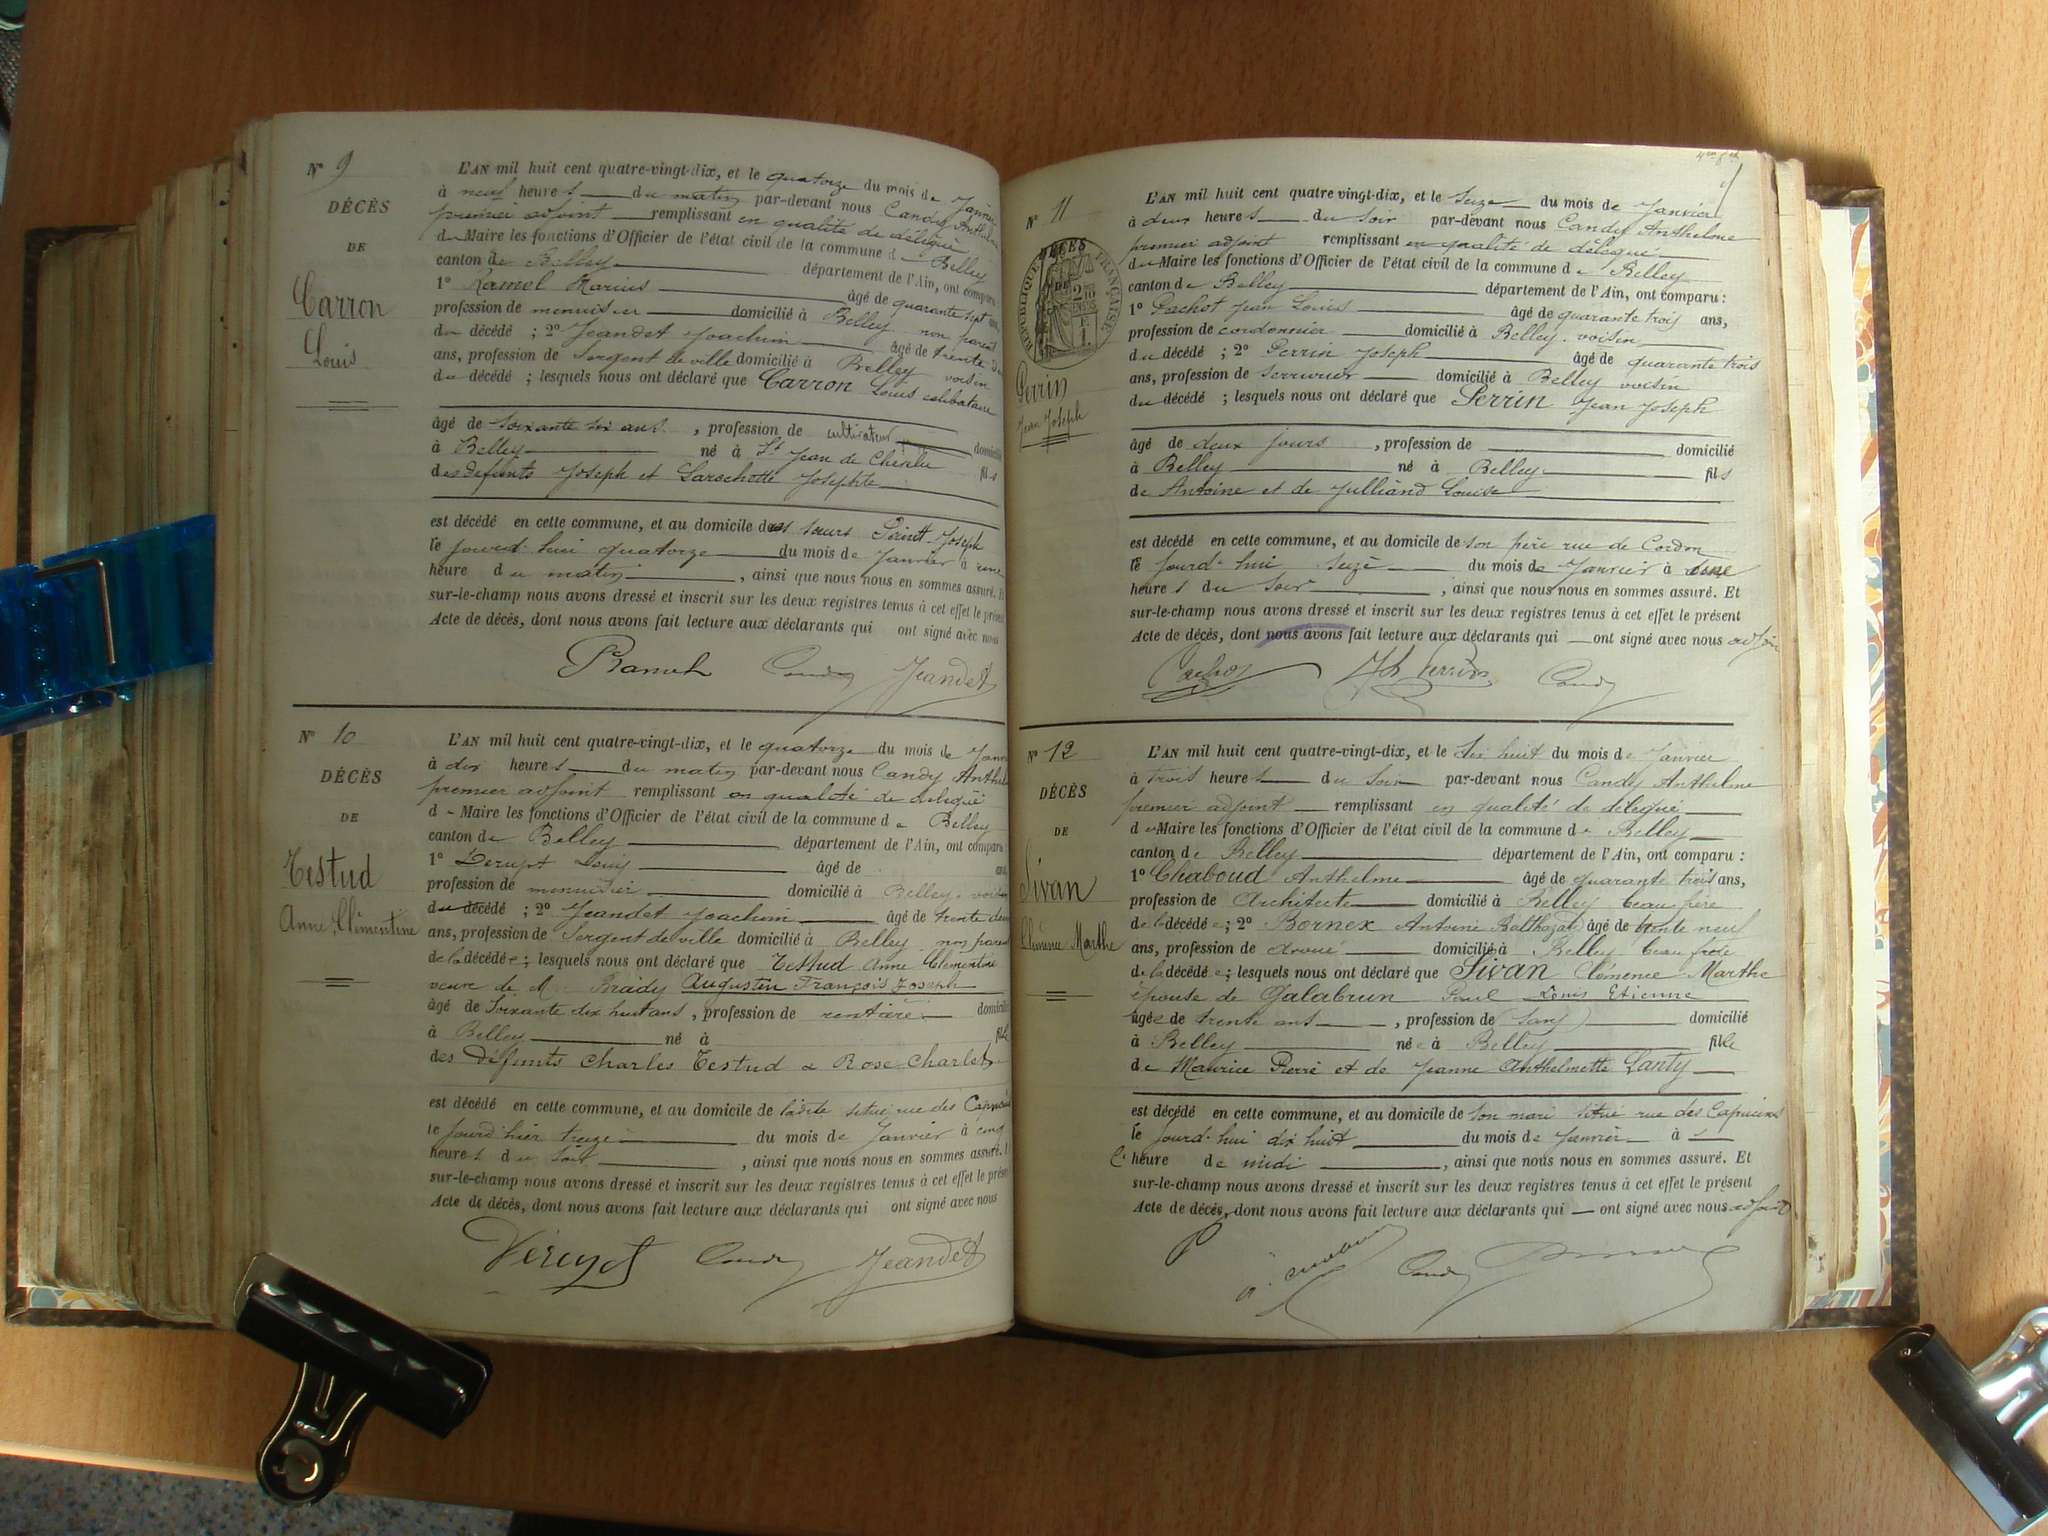 N° 9
DÉCÈS
DE
Carron
Louis
L'AN mil huit cent quatre-vingt-dix, et le quatorze du mois de Janvier
à neuf heures du matin par-devant nous Candy Anthelme
premier adjoint remplissant en qualité de délégué
du Maire les fonctions d'Officier de l'état civil de la commune de Belley
canton de Belley département de l'Ain, ont comparu
1° Ramel Marius âgé de quarante sept ans,
profession de menuisier domicilié à Belley non parent
du décédé ; 2° Jeandet Joachim âgé de trente
ans, profession de Sergent de ville domicilié à Belley voisin
du décédé ; lesquels nous ont déclaré que Carron Louis célibataire
âgé de soixante six ans , profession de cultivateur domicilié
à Belley né à St Jean de Chevelu fils
des défunts Joseph et Josephte
est décédé en cette commune, et au domicile des sœurs Saint Joseph
le jourd'hui quatorze du mois de Janvier à une
heure du matin , ainsi que nous nous en sommes assuré. Et
sur-le-champ nous avons dressé et inscrit sur les deux registres tenus à cet effet le présent
Acte de décès, dont nous avons fait lecture aux déclarants qui ont signé avec nous
Ramel Candy Jeandet
N° 10
DÉCÈS
DE
Testud
Anne Clémentine
L'AN mil huit cent quatre-vingt-dix, et le quatorze du mois de Janv
à dix heures du matin par-devant nous Candy Anthel
premier adjoint remplissant en qualité de délégué
d Maire les fonctions d'Officier de l'état civil de la commune de Belley
canton de Belley département de l'Ain, ont comparu
1° Louis âgé de ans,
profession de menuisier domicilié à Belley voisin
du décédé ; 2° Jeandet Joachim âgé de trente deux
ans, profession de Sergent de ville domicilié à Belley non parent
de la décédée ; lesquels nous ont déclaré que Testud Anne Clémentine
veuve de M. Brady Augustin François Joseph
âgé de Soixante dix huit ans , profession de rentière domicilié
à Belley né à fille
des défunts Charles Testud & Rose Charlet
est décédé en cette commune, et au domicile de situé rue des Capucins
le jourd'hier treize du mois de Janvier à cinq
heures du soir , ainsi que nous nous en sommes assuré.
sur-le-champ nous avons dressé et inscrit sur les deux registres tenus à cet effet le présent
Acte de décès, dont nous avons fait lecture aux déclarants qui ont signé avec nous
Candy Jeandet
N° 11
DÉCÈS
DE
RÉPUBLIQUE FRANÇAISE
Perrin
Jean Joseph
L'AN mil huit cent quatre vingt-dix, et le Seize du mois de Janvier
à deux heures du soir par-devant nous Candy Anthelme
premier adjoint remplissant en qualité de délégué
du Maire les fonctions d'Officier de l'état civil de la commune de Belley
canton de Belley département de l'Ain, ont comparu :
1° Jean Louis âgé de quarante trois ans,
profession de cordonnier domicilié à Belley voisin
du décédé ; 2° Perrin Joseph âgé de quarante trois
ans, profession de serrurier domicilié à Belley voisin
du décédé ; lesquels nous ont déclaré que Perrin Jean Joseph
âgé de deux jours , profession de domicilié
à Belley né à Belley fils
de Antoine et de Julliand Louise
est décédé en cette commune, et au domicile de son père rue de Cordon
le jourd'hui seize du mois de Janvier à une
heure du soir , ainsi que nous nous en sommes assuré. Et
sur-le-champ nous avons dressé et inscrit sur les deux registres tenus à cet effet le présent
Acte de décès, dont nous avons fait lecture aux déclarants qui ont signé avec nous adjoint
Jh Perrin Candy
N° 12
DÉCÈS
DE
Sivan
Clémence Marthe
L'AN mil huit cent quatre-vingt-dix, et le dix huit du mois de Janvier
à trois heures du soir par-devant nous Candy Anthelme
premier adjoint remplissant en qualité de délégué
du Maire les fonctions d'Officier de l'état civil de la commune de Belley
canton de Belley département de l'Ain, ont comparu :
1° Chaboud Anthelme âgé de quarante trois ans,
profession de Architecte domicilié à Belley beau père
de la décédée ; 2° Bornex Antoine Balthazar âgé de trente neuf
ans, profession de avoué domicilié à Belley beau frère
de la décédée ; lesquels nous ont déclaré que Sivan Clémence Marthe
épouse de Galabrun Paul Louis Etienne
âgée de trente ans , profession de (sans) domicilié
à Belley née à Belley fille
de Maurice Pierre et de Jeanne Anthelmette Lanty
est décédé en cette commune, et au domicile de son mari situé rue des Capucins
le jourd'hui dix huit du mois de Janvier à
heure de midi , ainsi que nous nous en sommes assuré. Et
sur-le-champ nous avons dressé et inscrit sur les deux registres tenus à cet effet le présent
Acte de décès, dont nous avons fait lecture aux déclarants qui ont signé avec nous adjoint
Candy